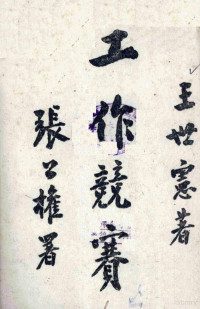 王世憲著
工作競賽
張公權署